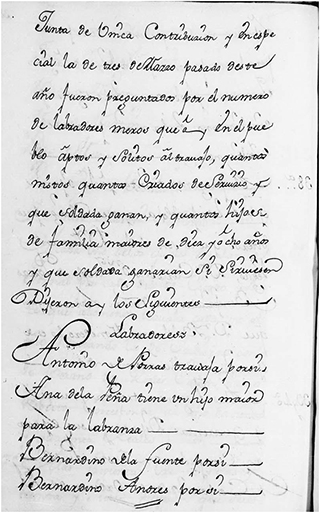 Junta de Unica Contribucion y en espe
cial la de tres de Marzo pasado deste
año fueron preguntados por el numero
de labradores meros que ay en el pue
blo aptos y solitos al travajo, quantos
mistos quantos Criados de Servicio y
que soldada ganan, y quantos hijos
de familia maiores de diez y ocho años
y que soldada ganarian si sirviesen
Dijeron ay los siguientes
Labradores
Antonio de Porras travaja porsi
Ana dela Peña tiene un hijo maior
para la labranza
Bernardino dela fuente porsi
Bernardino Andres porsi